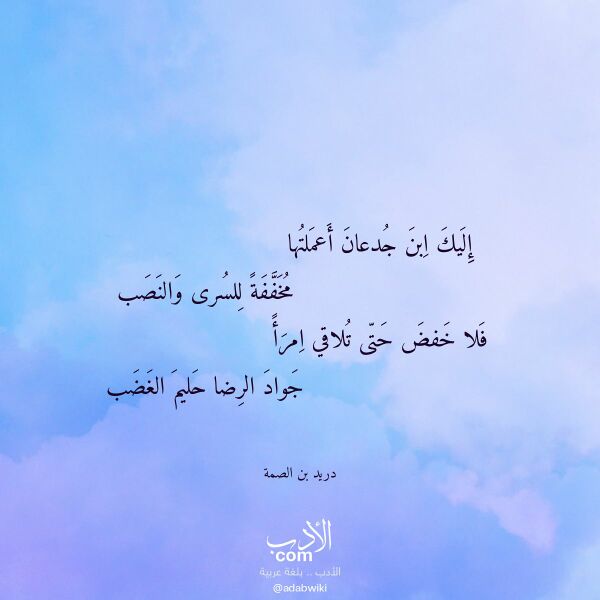 إِلَيكَ اِبنَ جُدعانَ أَعمَلتُها
مُخَفَّفَةً لِلسُرى وَالنَصَب
فَلا خَفضَ حَتّى تُلاقي اِمرَأً
جَوادَ الرِضا حَليمَ الغَضَب
دريد بن الصمة
الأدب
com
الأدب .. بلغة عربية
@adabwiki